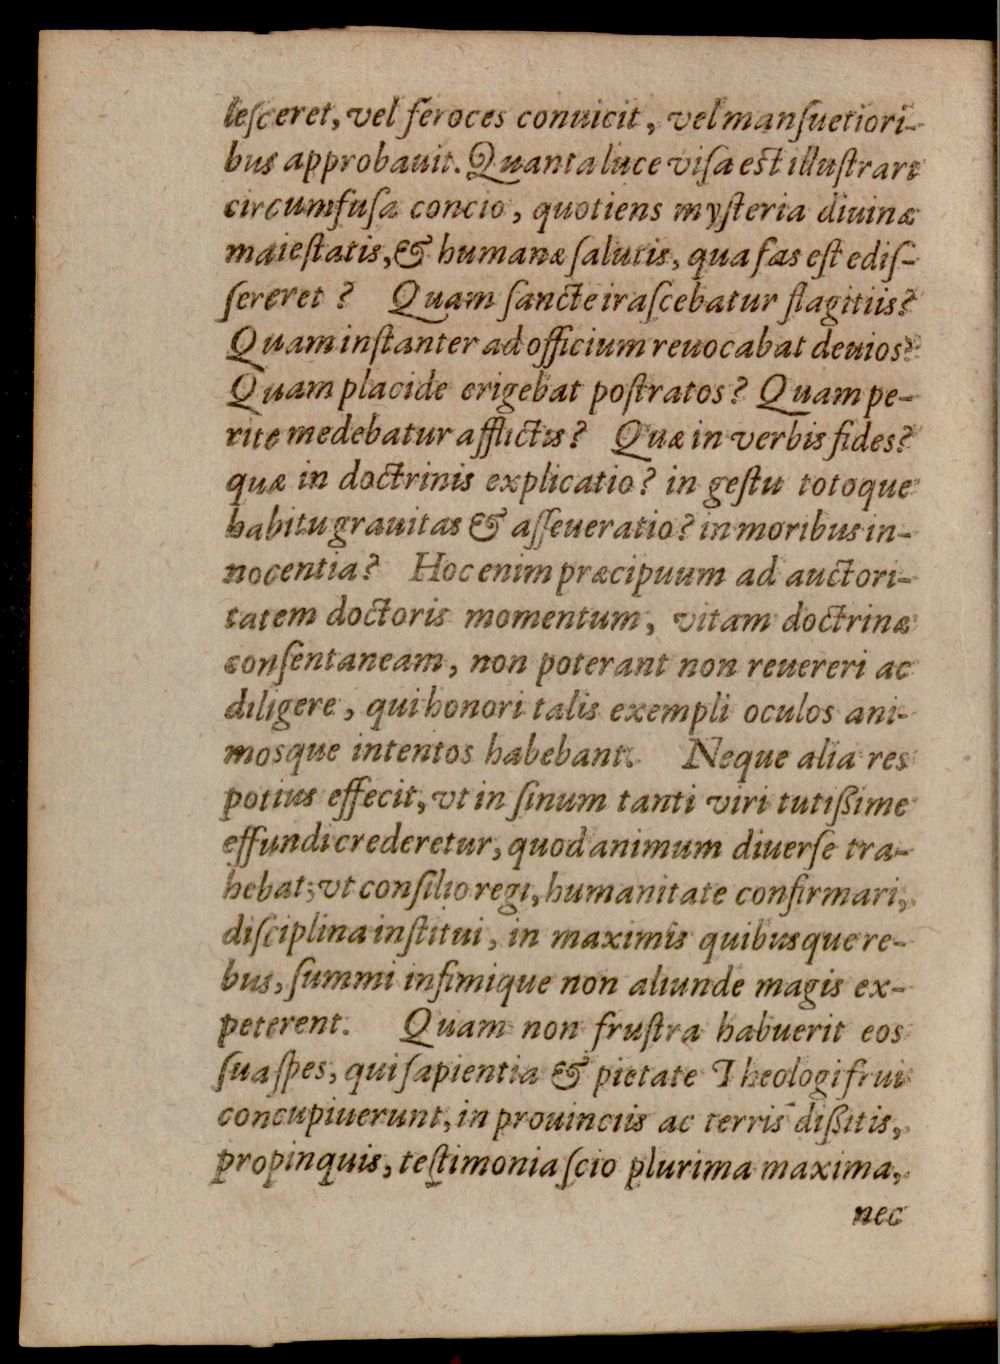 leſceret, vel feroces conuicit, vel manſuetiori-
bus approbauit. Quanta luce viſa est illuſtrare
circumfuſa concio, quotiens myſteria diuinæ
maieſtatis, & humanæ ſalutis, qua fas eſt ediſ-
ſereret? Quam ſancte iraſcebatur flagitiis?
Quam inſtanter ad officium reuocabat deuios?
Quam placide erigebat poſtratos? Quam pe-
rite medebatur afflictis? Quæ in verbis fides?
quæ in doctrinis explicatio? in geſtu totoque
habitu grauitas & aſſeueratio? in moribus in-
nocentia? Hoc enim præcipuum ad auctori-
tatem doctoris momentum, vitam doctrinæ
conſentaneam, non poterant non reuereri ac
diligere, qui honori talis exempli oculos ani-
mosque intentos habebant. Neque alia res
potius effecit, vt in ſinum tanti viri tutißime
effundi crederetur, quod animum diuerſe tra-
hebat; vt conſilio regi, humanitate confirmari,
diſciplina inſtitui, in maximis quibusque re-
bus, ſummi infimique non aliunde magis ex-
peterent. Quam non fruſtra habuerit eos
ſua ſpes, qui ſapientia & pietate Theologi frui
concupiuerunt, in prouinciis ac terris dißitis,
propinquis, teſtimonia ſcio plurima maxima,
nec